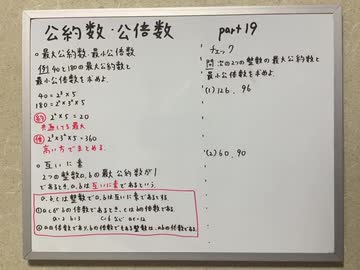 公約数・公倍数 part19
○最大公約数・最小公倍数
例 40と180の最大公約数と
最小公倍数を求めよ.
40 = 2³×5
180 = 2²×3²×5
約 2²×5 = 20
共通してる最大
倍 2³×3²×5 = 360
高い方でまとめる.
○互いに素
2つの整数a,bの最大公約数が1
であるとき,a,bは互いに素であるという.
a,b,cは整数でa,bは互いに素であるとする
①acがbの倍数であるとき,cはbの倍数である.
a=2 b=3 c=6 など ac=12
②aの倍数でありbの倍数でもある整数は,abの倍数である.
チェック
問 次の2つの整数の最大公約数と
最小公倍数を求めよ
(1) 126, 96
(2) 60, 90